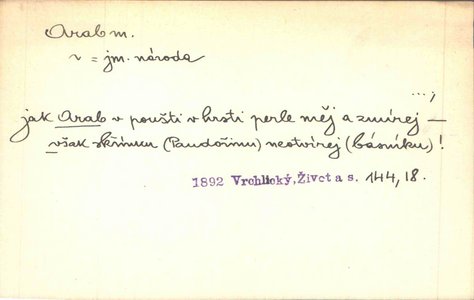 Arab m.
v = jm. národa
...,
jak Arab v poušti v hrsti perle měj a zmírej —
však skřínku (Pandořinu) neotvírej (básníku)!
1892 Vrchlický, Život a s. 144, 18.